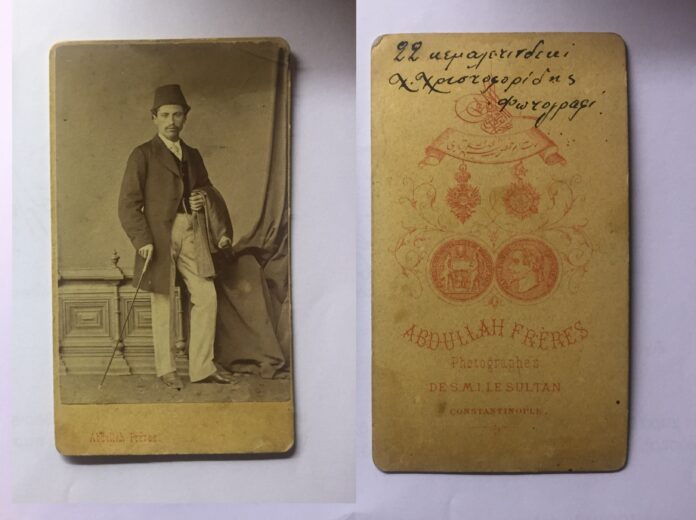 Abdullah Frères
22 κεμαλετιτδεκι
Χ. Χριστοφορίδης
φωτογραφι
ABDULLAH FRÈRES
Photographes
DE S.M.I. LE SULTAN
CONSTANTINOPLE.